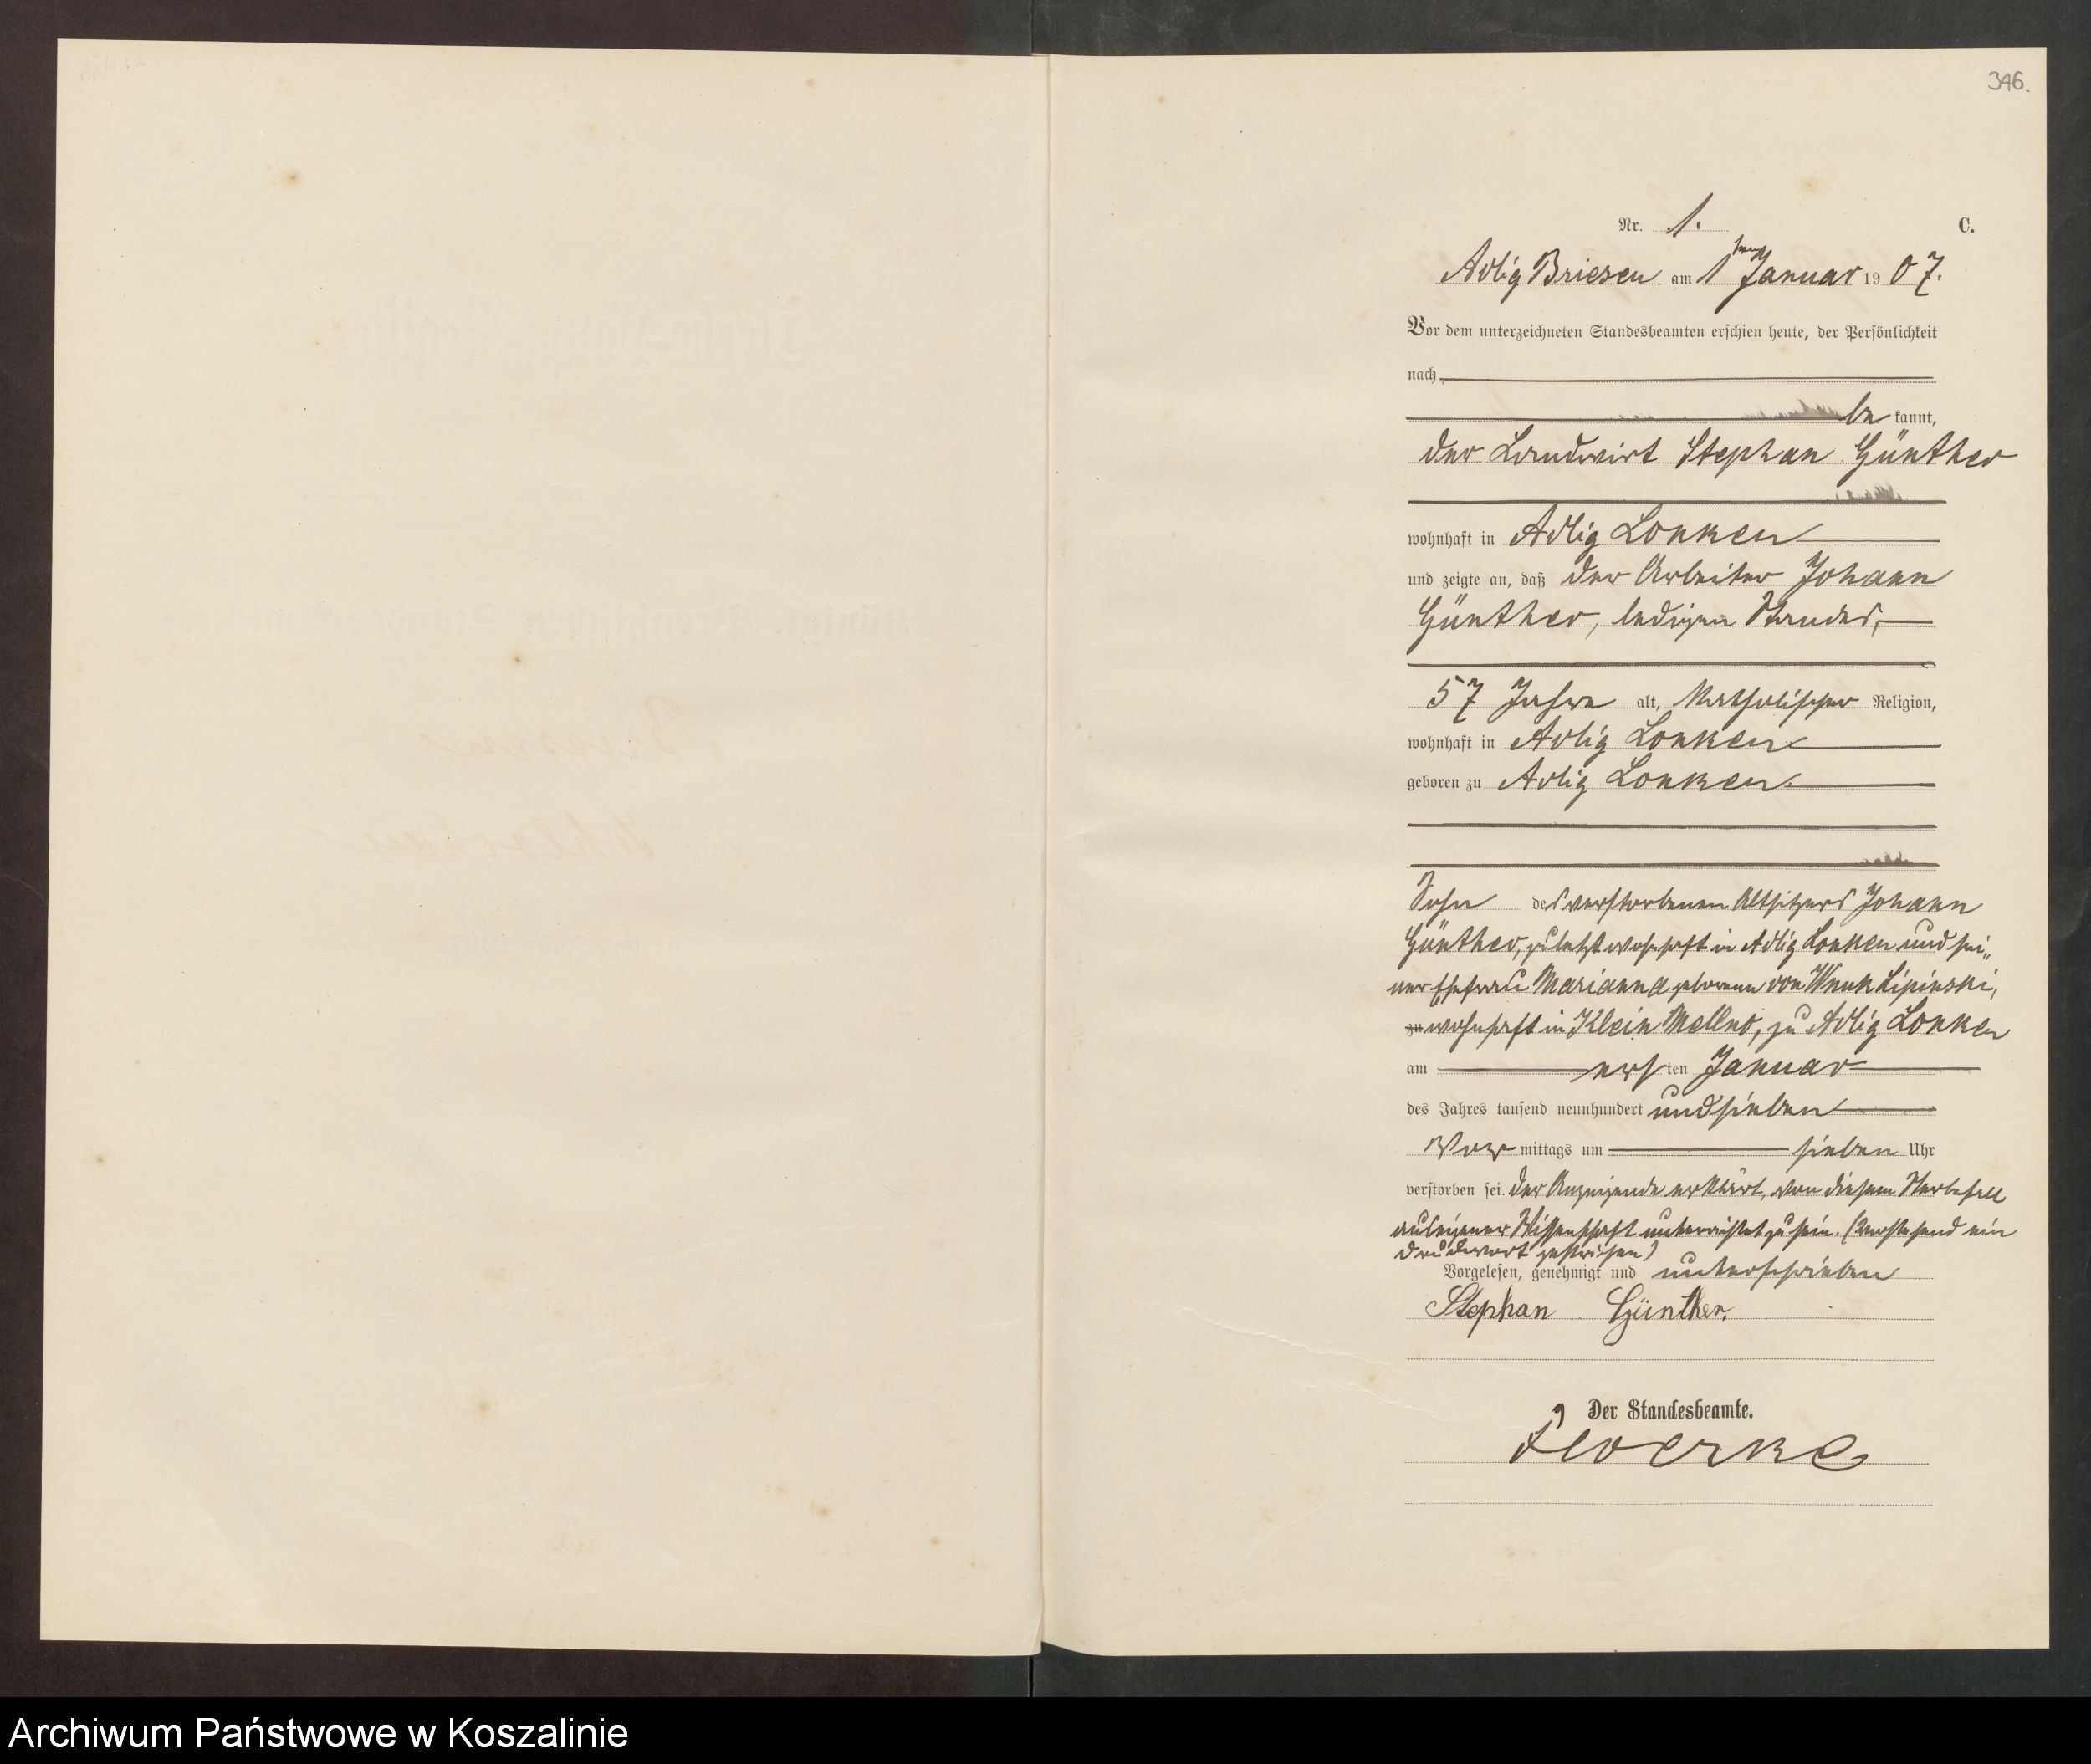 346.
Nr. 1.
C.
Adlig Briesen am 1ten Januar 1907.
Vor dem unterzeichneten Standesbeamten erschien heute, der Persönlichkeit
nach
be kannt,
der Landwirt Stephan Günther
wohnhaft in Adlig Lonken
und zeigte an, daß der Arbeiter Johann
Günther, ledigen Standes,
57 Jahre alt, katholischer Religion,
wohnhaft in Adlig Lonken
geboren zu Adlig Lonken
Sohn des verstorbenen Altsitzers Johann
Günther, zuletzt wohnhaft in Adlig Lonken und sei„
ner Ehefrau Marianna geborene von Wnuk Lipinski,
zu wohnhaft in Klein Mellno, zu Adlig Lonken
am ersten Januar
des Jahres tausend neunhundert und sieben
Vor mittags um sieben Uhr
verstorben sei. Der Anzeigende erklärt, von diesem Sterbefall
aus eigener Wissenschaft unterrichtet zu sein. (Vorstehend ein
Druckwort gestrichen)
Vorgelesen, genehmigt und unterschrieben
Stephan Günther.
Der Standesbeamte.
Archiwum Państwowe w Koszalinie